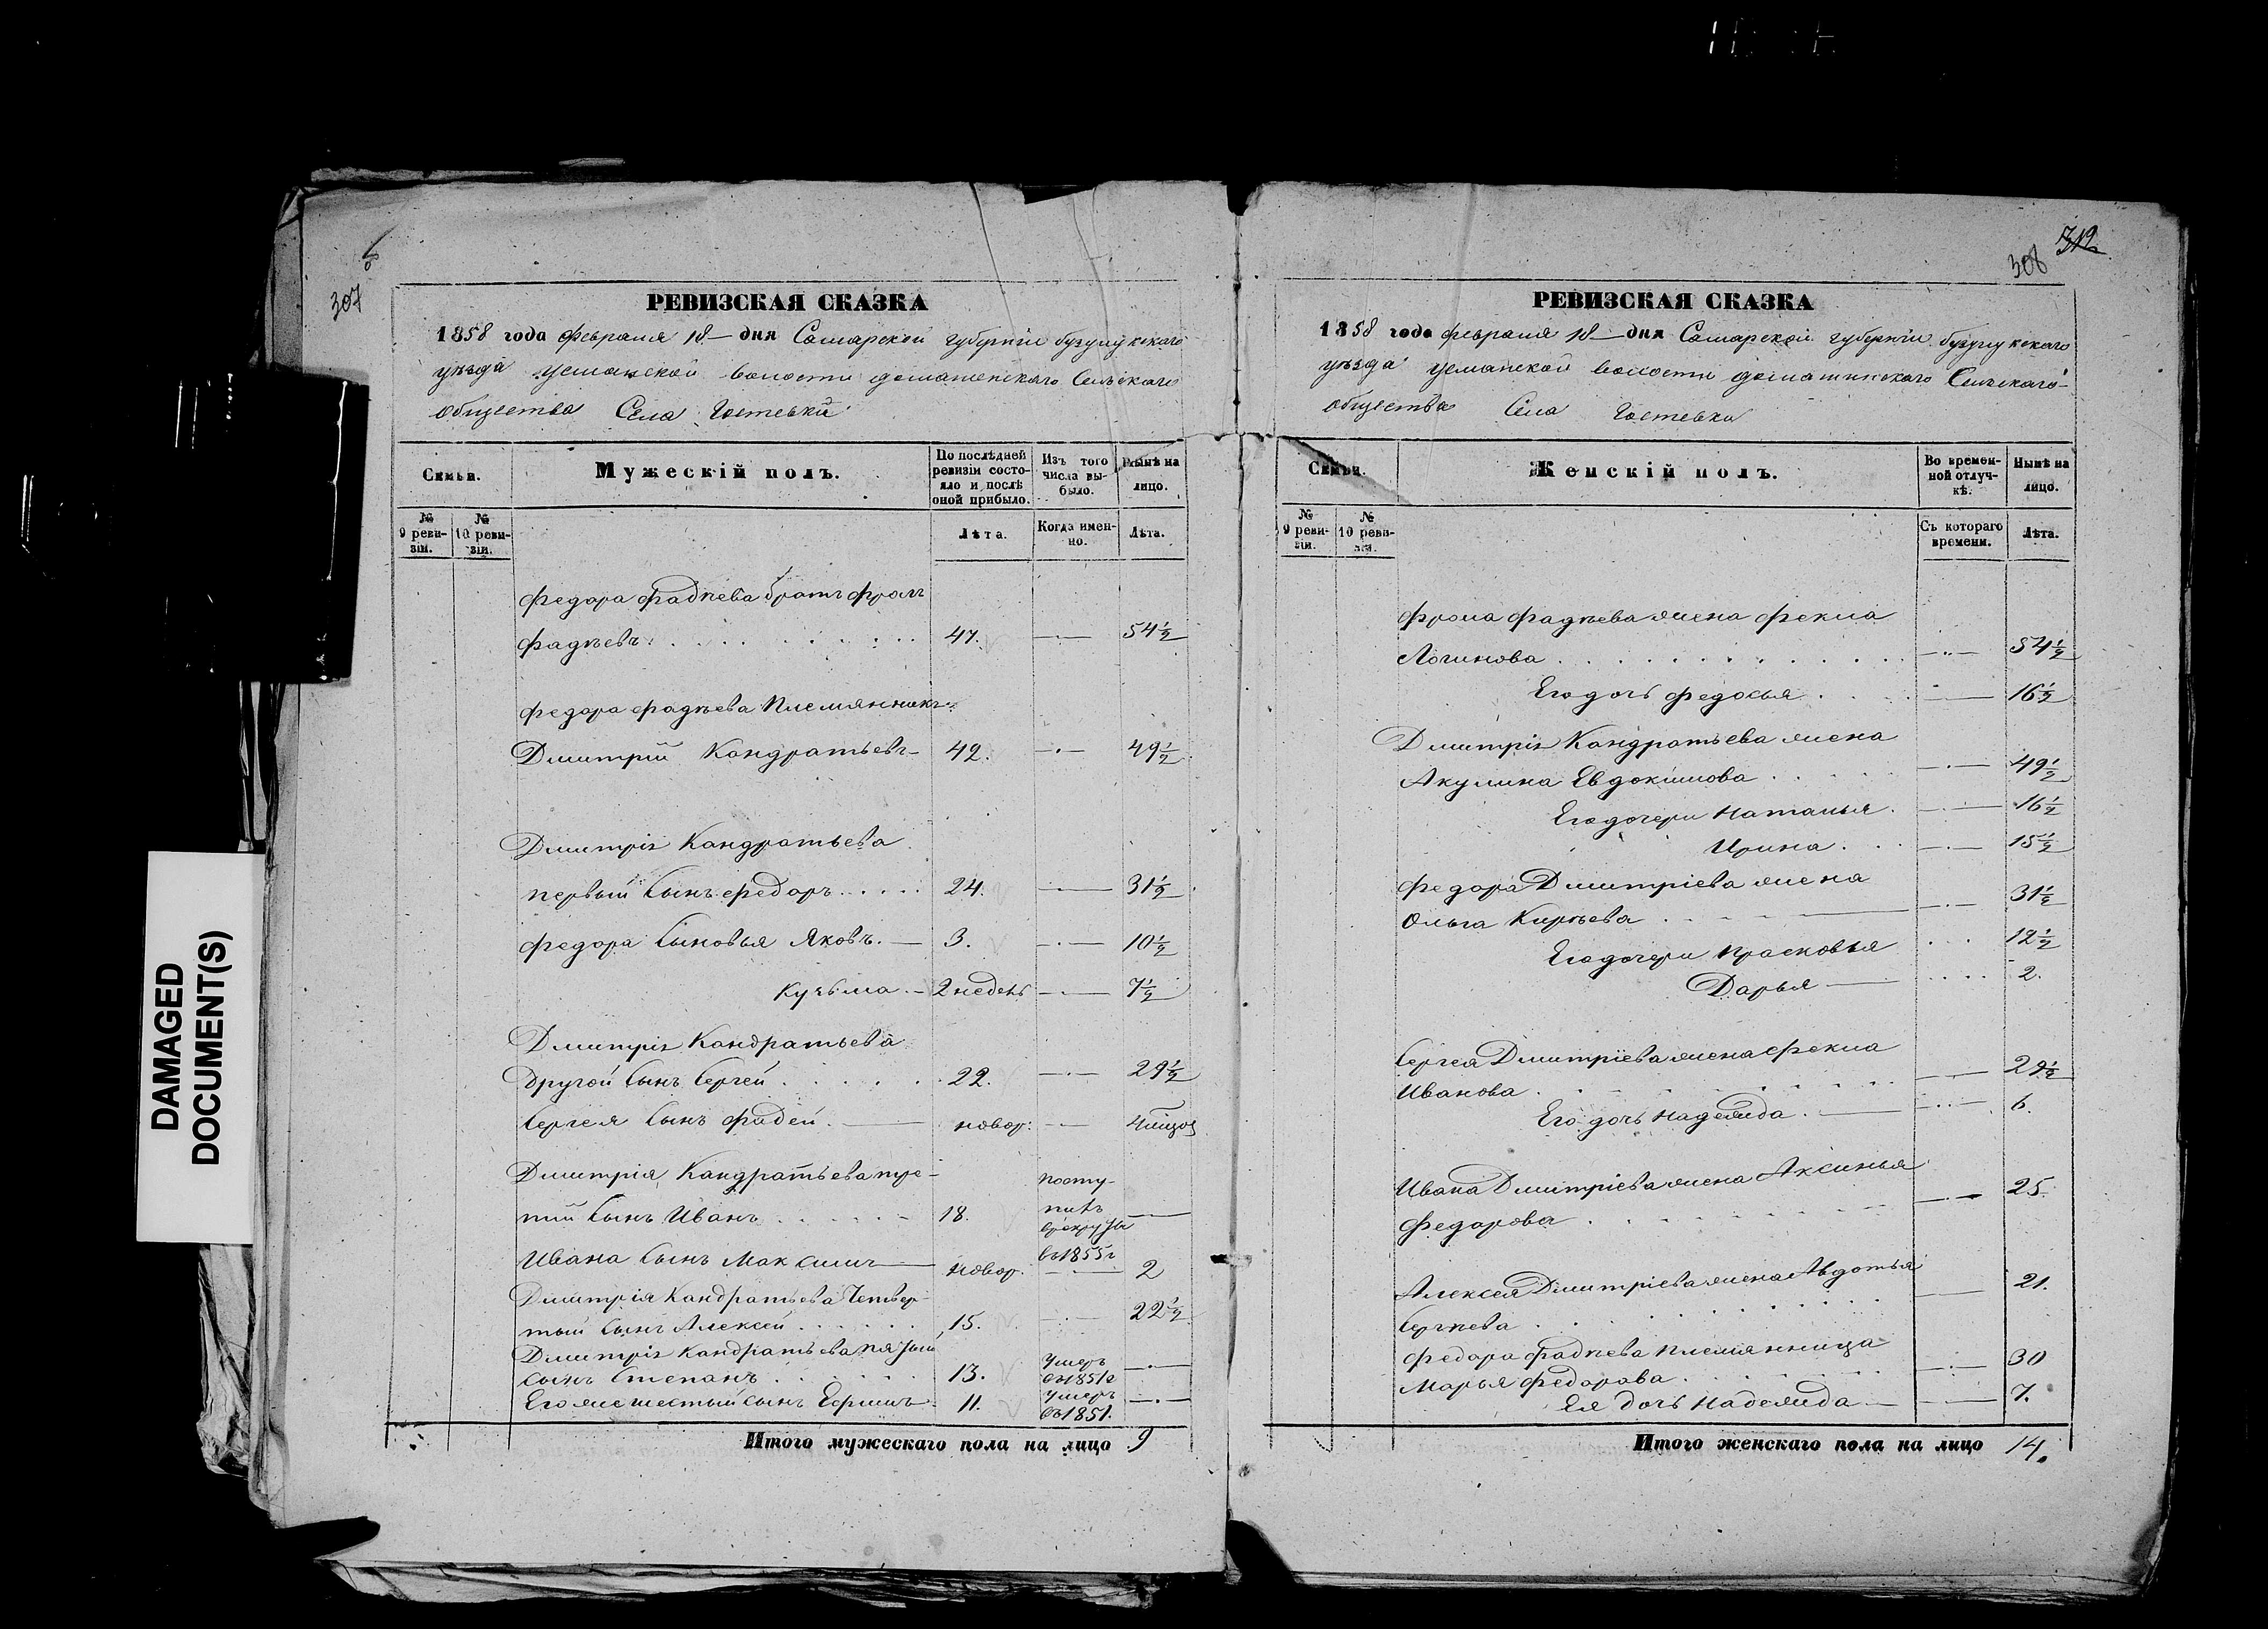 DAMAGED
DOCUMENT(S)
307
РЕВИЗСКАЯ СКАЗКА
1858 года февраля 18 дня Самарской губернии бузулукского
уезда усманской волости домашенскаго Сельскаго
общества Села Гостевки
Семьи.
Мужескій полъ.
По послѣдней ревизіи состояло и послѣ оной прибыло.
Изъ того числа выбыло.
Нынѣ на лицо.
№ 9 ревизіи.
№ 10 ревизіи.
Лѣта.
Когда именно.
Лѣта.
Федора Фадѣева братъ Фролъ
Фадѣевъ 47. 54½
Федора Фадѣева Племянникъ
Дмитрій Кандратьевъ 42. 49½
Дмитрія Кандратьева
первый Сынъ Федоръ 24. 31½
Федора Сыновья Яковъ. 3. 10½
Кузьма 2 недель 7½
Дмитрія Кандратьева
Другой Сынъ Сергей 22. 29½
Сергея Сынъ Фадей. новор. 4 мѣсяц
Дмитрія Кандратьева тре-
тий Сынъ Иванъ 18. посту-
пилъ
в рекруты
въ 1855 г
Ивана Сынъ Максимъ новор. 2
Дмитрія Кандратьева Четвер-
тый Сынъ Алексей 15. 22½
Дмитрія Кандратьева пятый
Сынъ Степанъ 13. Умеръ
въ 1851 г
Его же шестый сынъ Ефимъ 11. Умеръ
въ 1851.
Итого мужескаго пола на лицо 9
312
308
РЕВИЗСКАЯ СКАЗКА
1858 года февраля 18 дня Самарской губернии бузулукскаго
уезда усманской волости домашинскаго Сельскаго
общества Села Гостевки
Семьи.
Женскій полъ.
Во временной отлучкѣ.
Нынѣ на лицо.
№ 9 ревизіи.
№ 10 ревизіи.
Съ котораго времени.
Лѣта.
Фрола Фадѣева жена Фекла
Логинова 54½
Его дочь Федосья 16½
Дмитрія Кандратьева жена
Акулина Евдокимова 49½
Его дочери Наталья 16½
Ирина 15½
Федора Дмитріева жена
Ольга Кирѣева 31½
Его дочери Прасковья 12½
Дарья 2.
Сергея Дмитріева жена Фекла
Иванова 29½
Его дочь Надежда 6.
Ивана Дмитріева жена Аксинья
Федорова 25.
Алексея Дмитріева жена Авдотья
Сергѣева 21.
Федора Фадѣева племянница
Марья Федорова 30
Ея Дочь Надежда 7.
Итого женскаго пола на лицо 14.